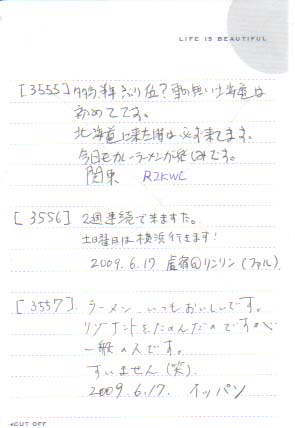 LIFE IS BEAUTIFUL
[3555] 半年ぶり位?雪の無い北海道は
初めてです。
北海道に来た時は必ず来てます。
今日もカレーラーメンが楽しみです。
関東 R2KWC
[3556] 2週連続で来ますた。
土曜日は横浜行きます!
2009.6.17 リンリン(ファル)
[3557]. ラーメン いつもおいしいです。
リゾナントをたのんだのですが
一般の人です。
すいません(笑)
2009.6.17. イッパン
◂CUT OFF